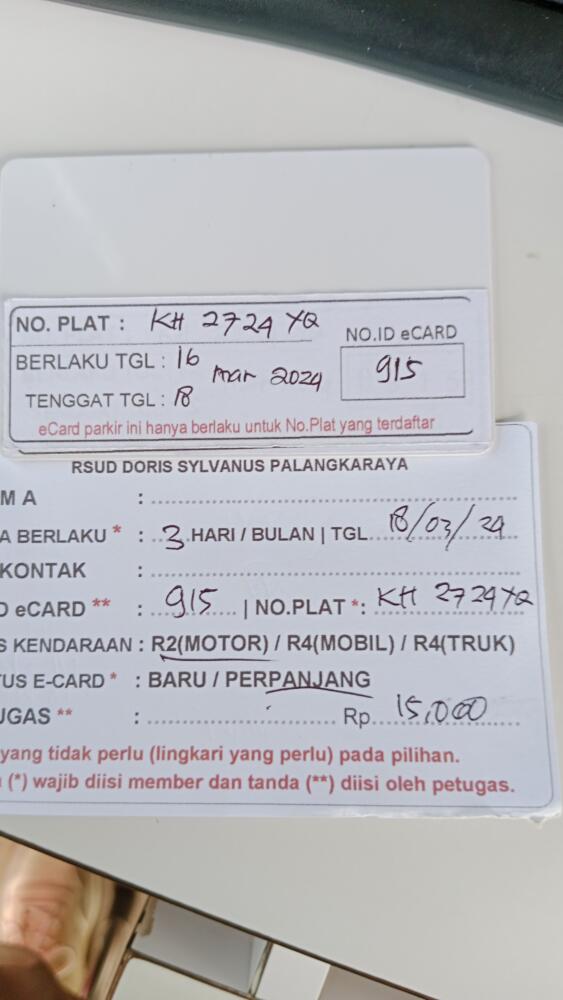 NO. PLAT : KH 2724 YQ
NO.ID eCARD
BERLAKU TGL : 16
Mar 2024
915
TENGGAT TGL : 18
eCard parkir ini hanya berlaku untuk No.Plat yang terdaftar
RSUD DORIS SYLVANUS PALANGKARAYA
M A :
A BERLAKU * : 3 HARI / BULAN | TGL. 18/03/24
KONTAK :
D eCARD ** : 915 | NO.PLAT *: KH 2724 YQ
S KENDARAAN : R2(MOTOR) / R4(MOBIL) / R4(TRUK)
TUS E-CARD * : BARU / PERPANJANG
UGAS ** : Rp. 15,000
yang tidak perlu (lingkari yang perlu) pada pilihan.
(*) wajib diisi member dan tanda (**) diisi oleh petugas.